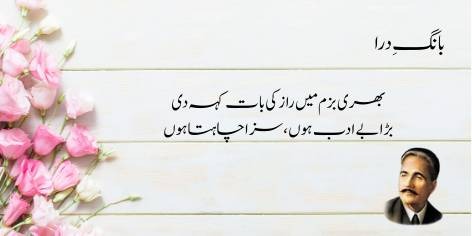 بانگِ درا
بھری بزم میں راز کی بات کہہ دی
بڑا بے ادب ہوں، سزا چاہتا ہوں